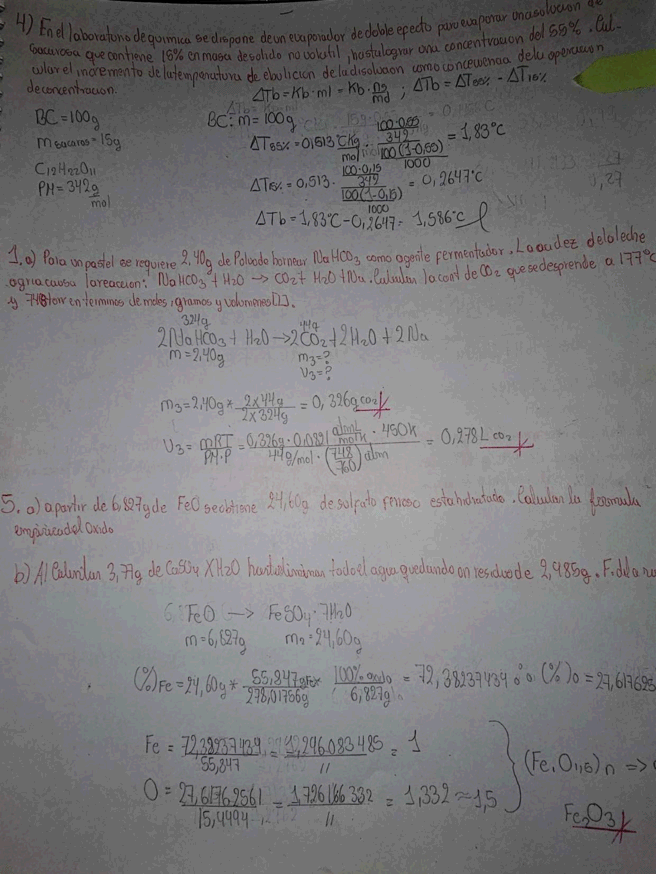 4) En el laboratorio de quimica se dispone de un evaporador de doble efecto para evaporar una solucion de
sacarosa que contiene 15% en masa de solido no volatil, hasta lograr una concentracion del 55%. Cal-
cular el incremento de la temperatura de ebolicion de la disolucion como concecuencia de la operacion
de concentracion.
ΔTb = Kb·ml = Kb·ng/md ; ΔTb = ΔT55% - ΔT15%
BC = 100g
BC: m = 100g
m sacaros = 15g
ΔT55% = 0,513 °CKg/mol · (100·0,55/342)/(100(1-0,55)/1000) = 1,83°C
C12H22O11
PM = 342 g/mol
ΔT15% = 0,513 · (100·0,15/342)/(100(1-0,15)/1000) = 0,2647°C
ΔTb = 1,83°C - 0,2647 = 1,586°C
1.a) Para un pastel se requiere 2,40g de Polvo de hornear NaHCO3 como agente fermentador. La acidez de la leche
agria causa la reaccion: NaHCO3 + H2O → CO2 + H2O + Na. Calcular la cant de CO2 que se desprende a 177°C
y 748 torr en terminos de moles, gramos y volumenes [L].
324g 44g
2NaHCO3 + H2O → 2CO2 + 2H2O + 2Na
m = 2,40g m3 = ?
V3 = ?
m3 = 2,40g * 2x44g/2x324g = 0,326g CO2
V3 = mRT/PM·P = 0,326g · 0,0821 atmL/molK · 450K / 44g/mol · (748/760) atm = 0,278L CO2
5. a) a partir de 6,827g de FeO se obtiene 24,60g de sulfato ferroso estahidratado. Calcular la formula
empirica del oxido
b) Al Calcinar 3,77g de CaSO4 XH2O hasta eliminar todo el agua quedando un residuo de 2,985g. F. de la
FeO → FeSO4·7H2O
m = 6,827g m2 = 24,60g
(%)Fe = 24,60g * 55,847gFe/278,01756g * 100% oxido/6,827g = 72,38237439 ∴ (%)O = 27,617625
Fe = 72,38237439/55,847 = 1,296083485/11 = 1
O = 27,61762561/15,4494 = 1,726166332/11 = 1,332 ≈ 1,5
(Fe, O1,5)n =>
Fe2O3